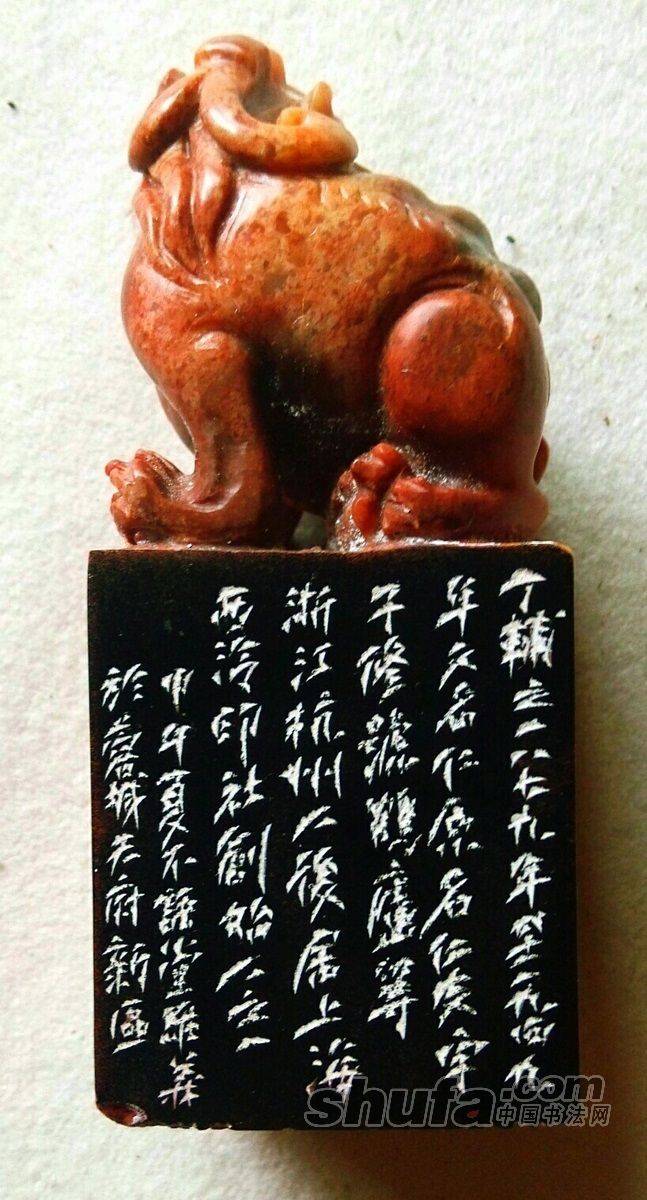 丁輔之一八七九年生一九四九
年又名仁原名仁友字
子修號鶴廬
浙江杭州人後居上海
西泠印社創始人之一
甲午夏不語堂
於蓉城天府新區
shufa.com
中国书法网